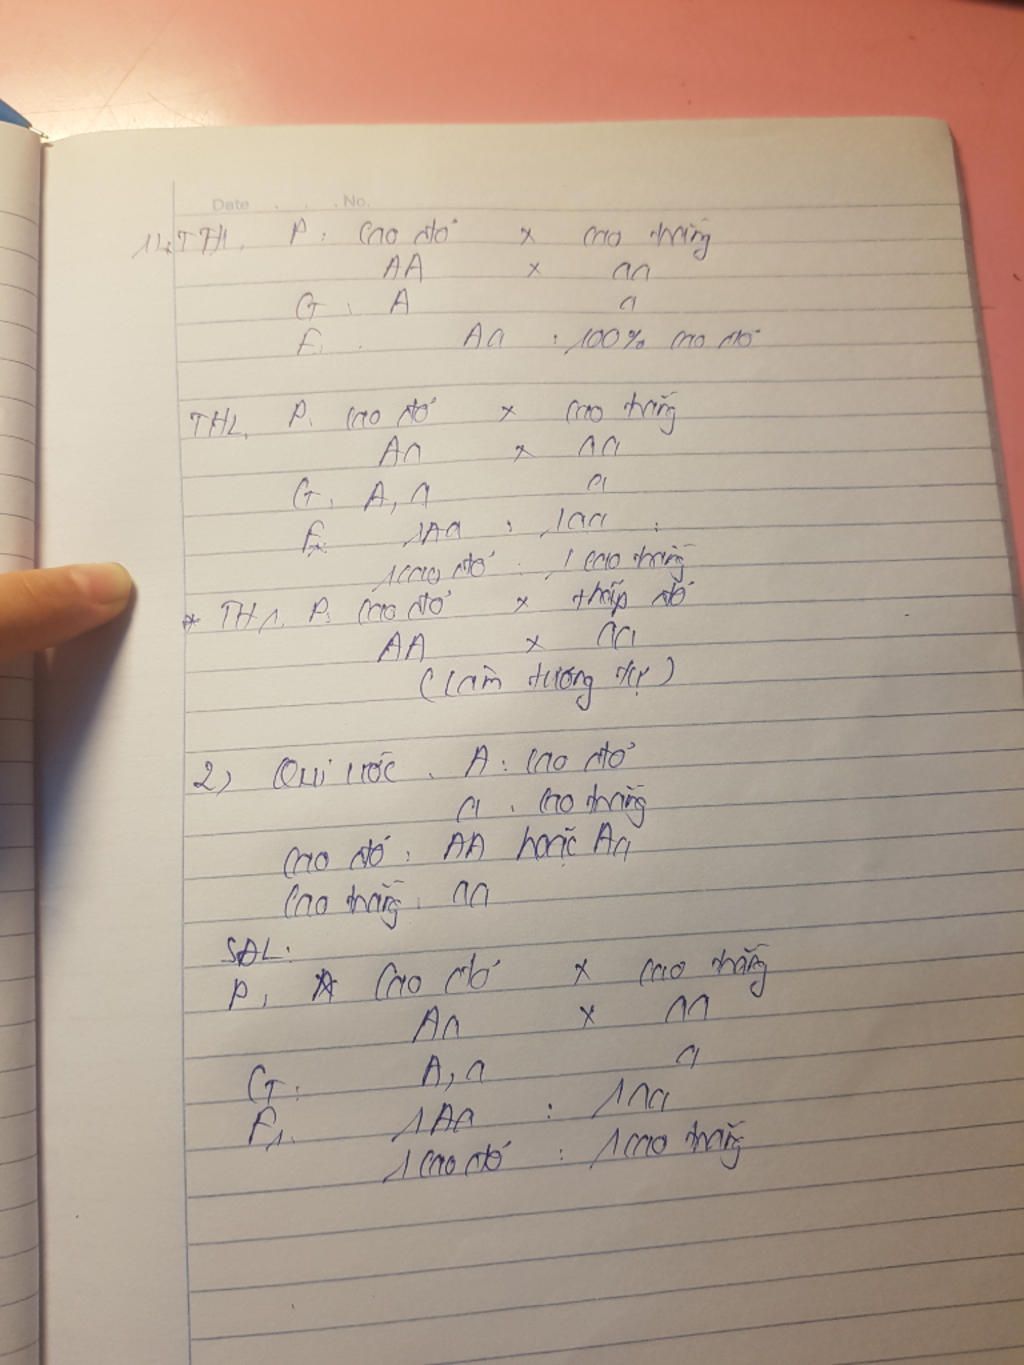 Date . . . No.
1) * TH1. P: Cao đỏ x cao trắng
AA x aa
G: A a
F1: Aa : 100% cao đỏ
TH2. P: Cao đỏ x Cao trắng
Aa x aa
G: A, a a
F1: 1Aa : 1aa :
1 cao đỏ : 1 cao trắng
* TH1. P: Cao đỏ x thấp đỏ
AA x aa
(Làm tương tự)
2) Qui ước. A: cao đỏ
a: cao trắng
Cao đỏ: AA hoặc Aa
Cao trắng: aa
SĐL:
P: Cao đỏ x cao trắng
Aa x aa
G: A, a a
F1: 1Aa : 1aa
1 cao đỏ : 1 cao trắng